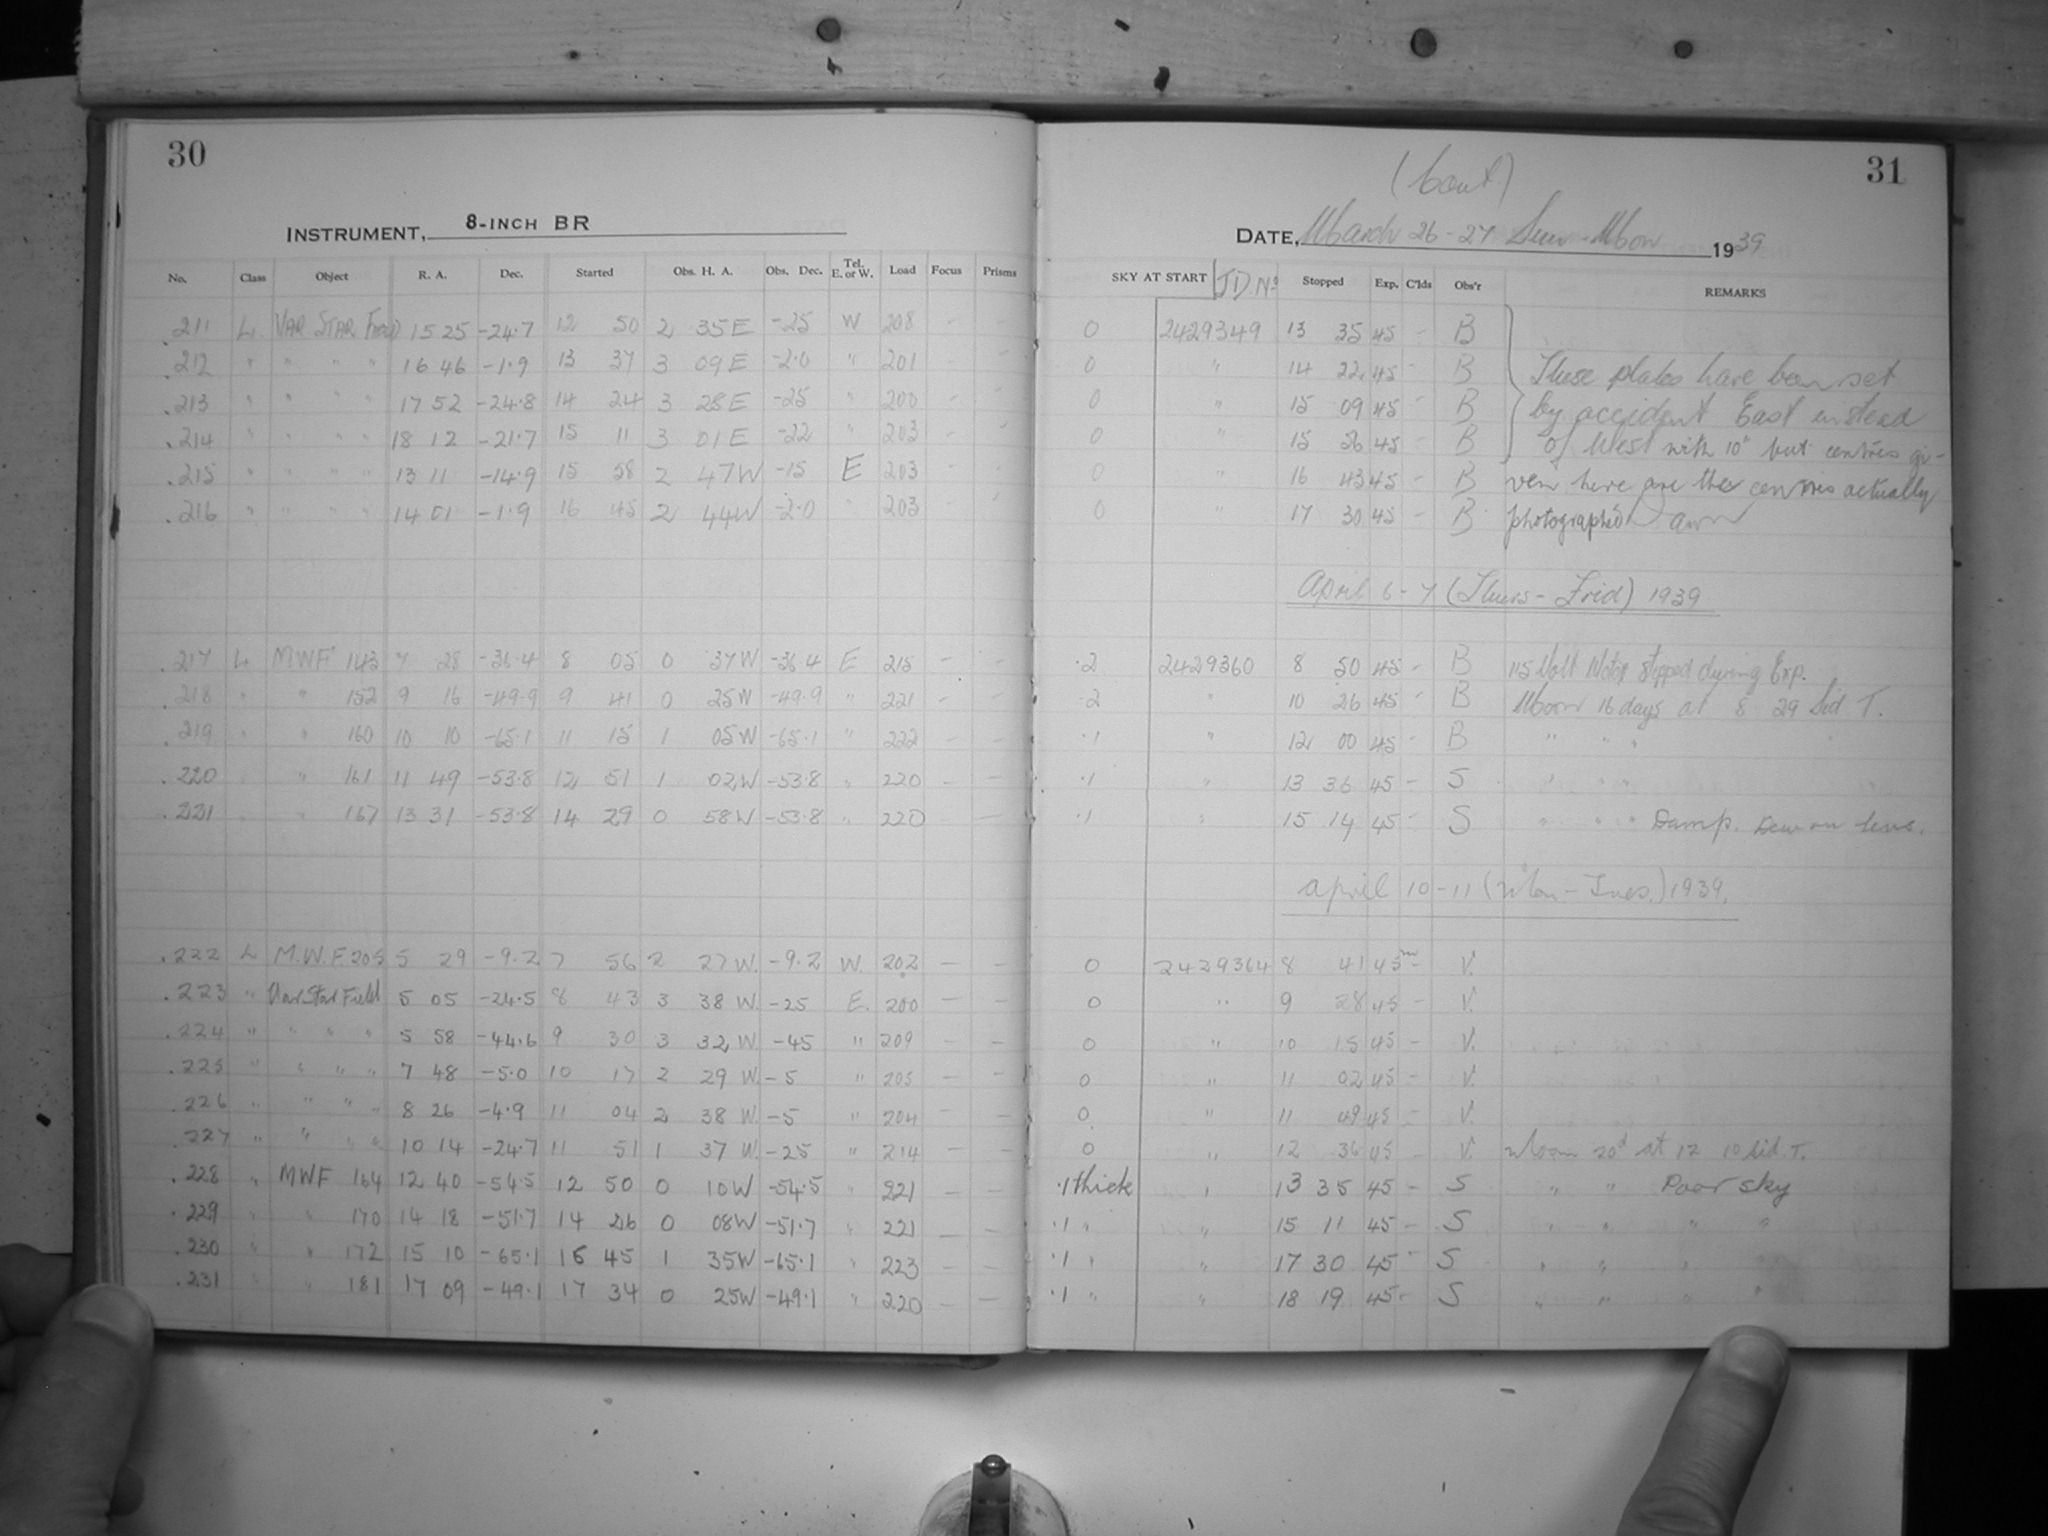 30
INSTRUMENT, 8-INCH BR
No. Class Object R. A. Dec. Started Obs. H. A. Obs. Dec. Tel. E. or W. Load Focus Prisms
.211 L. VAR STAR FIELD 15 25 -24.7 12 50 2 35 E -25 W 208 - -
.212 " " " " 16 46 -1.9 13 37 3 09 E -2.0 " 201 - -
.213 " " " " 17 52 -24.8 14 24 3 28 E -25 " 200 - -
.214 " " " " 18 12 -21.7 15 11 3 01 E -22 " 203 - -
.215 " " " " 13 11 -14.9 15 58 2 47 W -15 E 203 - -
.216 " " " " 14 01 -1.9 16 45 2 44 W -2.0 " 203 - -
.217 L. MWF 143 7 28 -36.4 8 05 0 37 W -36.4 E 215 - -
.218 " " 152 9 16 -49.9 9 41 0 25 W -49.9 " 221 - -
.219 " " 160 10 10 -65.1 11 15 1 05 W -65.1 " 222 - -
.220 " " 161 11 49 -53.8 12 51 1 02 W -53.8 " 220 - -
.221 " " 167 13 31 -53.8 14 29 0 58 W -53.8 " 220 - -
.222 L M.W.F. 205 5 29 -9.2 7 56 2 27 W. -9.2 W. 202 - -
.223 " Var Star Field 5 05 -24.5 8 43 3 38 W. -25 E. 200 - -
.224 " " " " 5 58 -44.6 9 30 3 32 W. -45 " 209 - -
.225 " " " " 7 48 -5.0 10 17 2 29 W. -5 " 205 - -
.226 " " " " 8 26 -4.9 11 04 2 38 W. -5 " 204 - -
.227 " " " " 10 14 -24.7 11 51 1 37 W. -25 " 214 - -
.228 " MWF 164 12 40 -54.5 12 50 0 10 W -54.5 " 221 - -
.229 " " 170 14 18 -51.7 14 26 0 08 W -51.7 " 221 - -
.230 " " 172 15 10 -65.1 16 45 1 35 W -65.1 " 223 - -
.231 " " 181 17 09 -49.1 17 34 0 25 W -49.1 " 220 - -
31
(Cont.)
DATE, March 26-27 Sun-Mon 1939
SKY AT START J.D. No Stopped Exp. C'lds Obs'r REMARKS
0 2429349 13 35 45 - B
0 " 14 22 45 - B These plates have been set
0 " 15 09 45 - B by accident East instead
0 " 15 56 45 - B of West with 10" but centres gi-
0 " 16 43 45 - B ven here are the centres actually
0 " 17 30 45 - B photographed
April 6-7 (Thurs-Frid) 1939
.2 2429360 8 50 45 - B 115 Volt Motor stopped during Exp.
.2 " 10 26 45 - B Moon 16 days at 8 29 Sid T.
.1 " 12 00 45 - B " " "
.1 " 13 36 45 - S " " "
.1 " 15 14 45 - S " " " Damp. Dew on lens.
April 10-11 (Mon-Tues.) 1939.
0 2429364 8 41 45m - V.
0 " 9 28 45 - V.
0 " 10 15 45 - V.
0 " 11 02 45 - V.
0 " 11 49 45 - V.
0 " 12 36 45 - V. Moon 20d at 12 10 Sid. T.
.1 thick " 13 35 45 - S " " Poor sky
.1 " " 15 11 45 - S " " " "
.1 " " 17 30 45 - S " " " "
.1 " " 18 19 45 - S " " " "